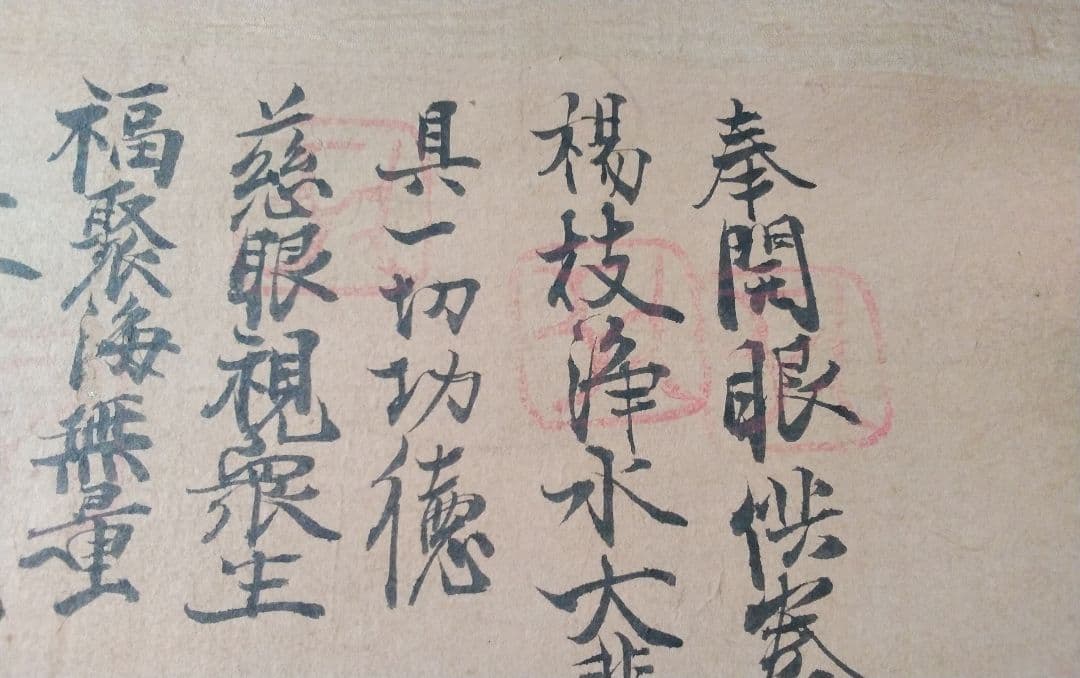 奉開眼供養
楊枝浄水大悲
具一切功徳
慈眼視衆生
福聚海無量